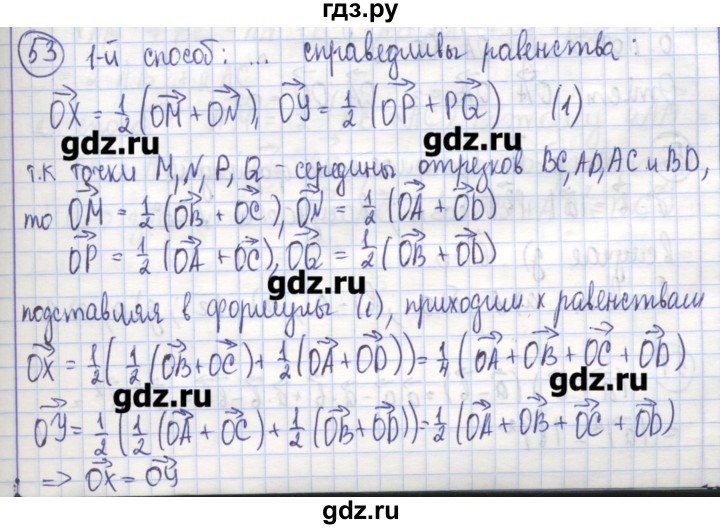 гдз.ру
53 1-й способ: ... справедливы равенства:
OX = 1/2 (OM + ON), OY = 1/2 (OP + PQ) (1)
gdz.ru gdz.ru
т.к точки M, N, P, Q - середины отрезков BC, AD, AC и BD,
то OM = 1/2 (OB + OC), ON = 1/2 (OA + OD)
OP = 1/2 (OA + OC), OQ = 1/2 (OB + OD)
gdz.ru
подставляя в формулы (1), приходим к равенствам
OX = 1/2 (1/2 (OB + OC) + 1/2 (OA + OD)) = 1/4 (OA + OB + OC + OD)
gdz.ru gdz.ru
OY = 1/2 (1/2 (OA + OC) + 1/2 (OB + OD)) = 1/2 (OA + OB + OC + OD)
=> OX = OY
gdz.ru